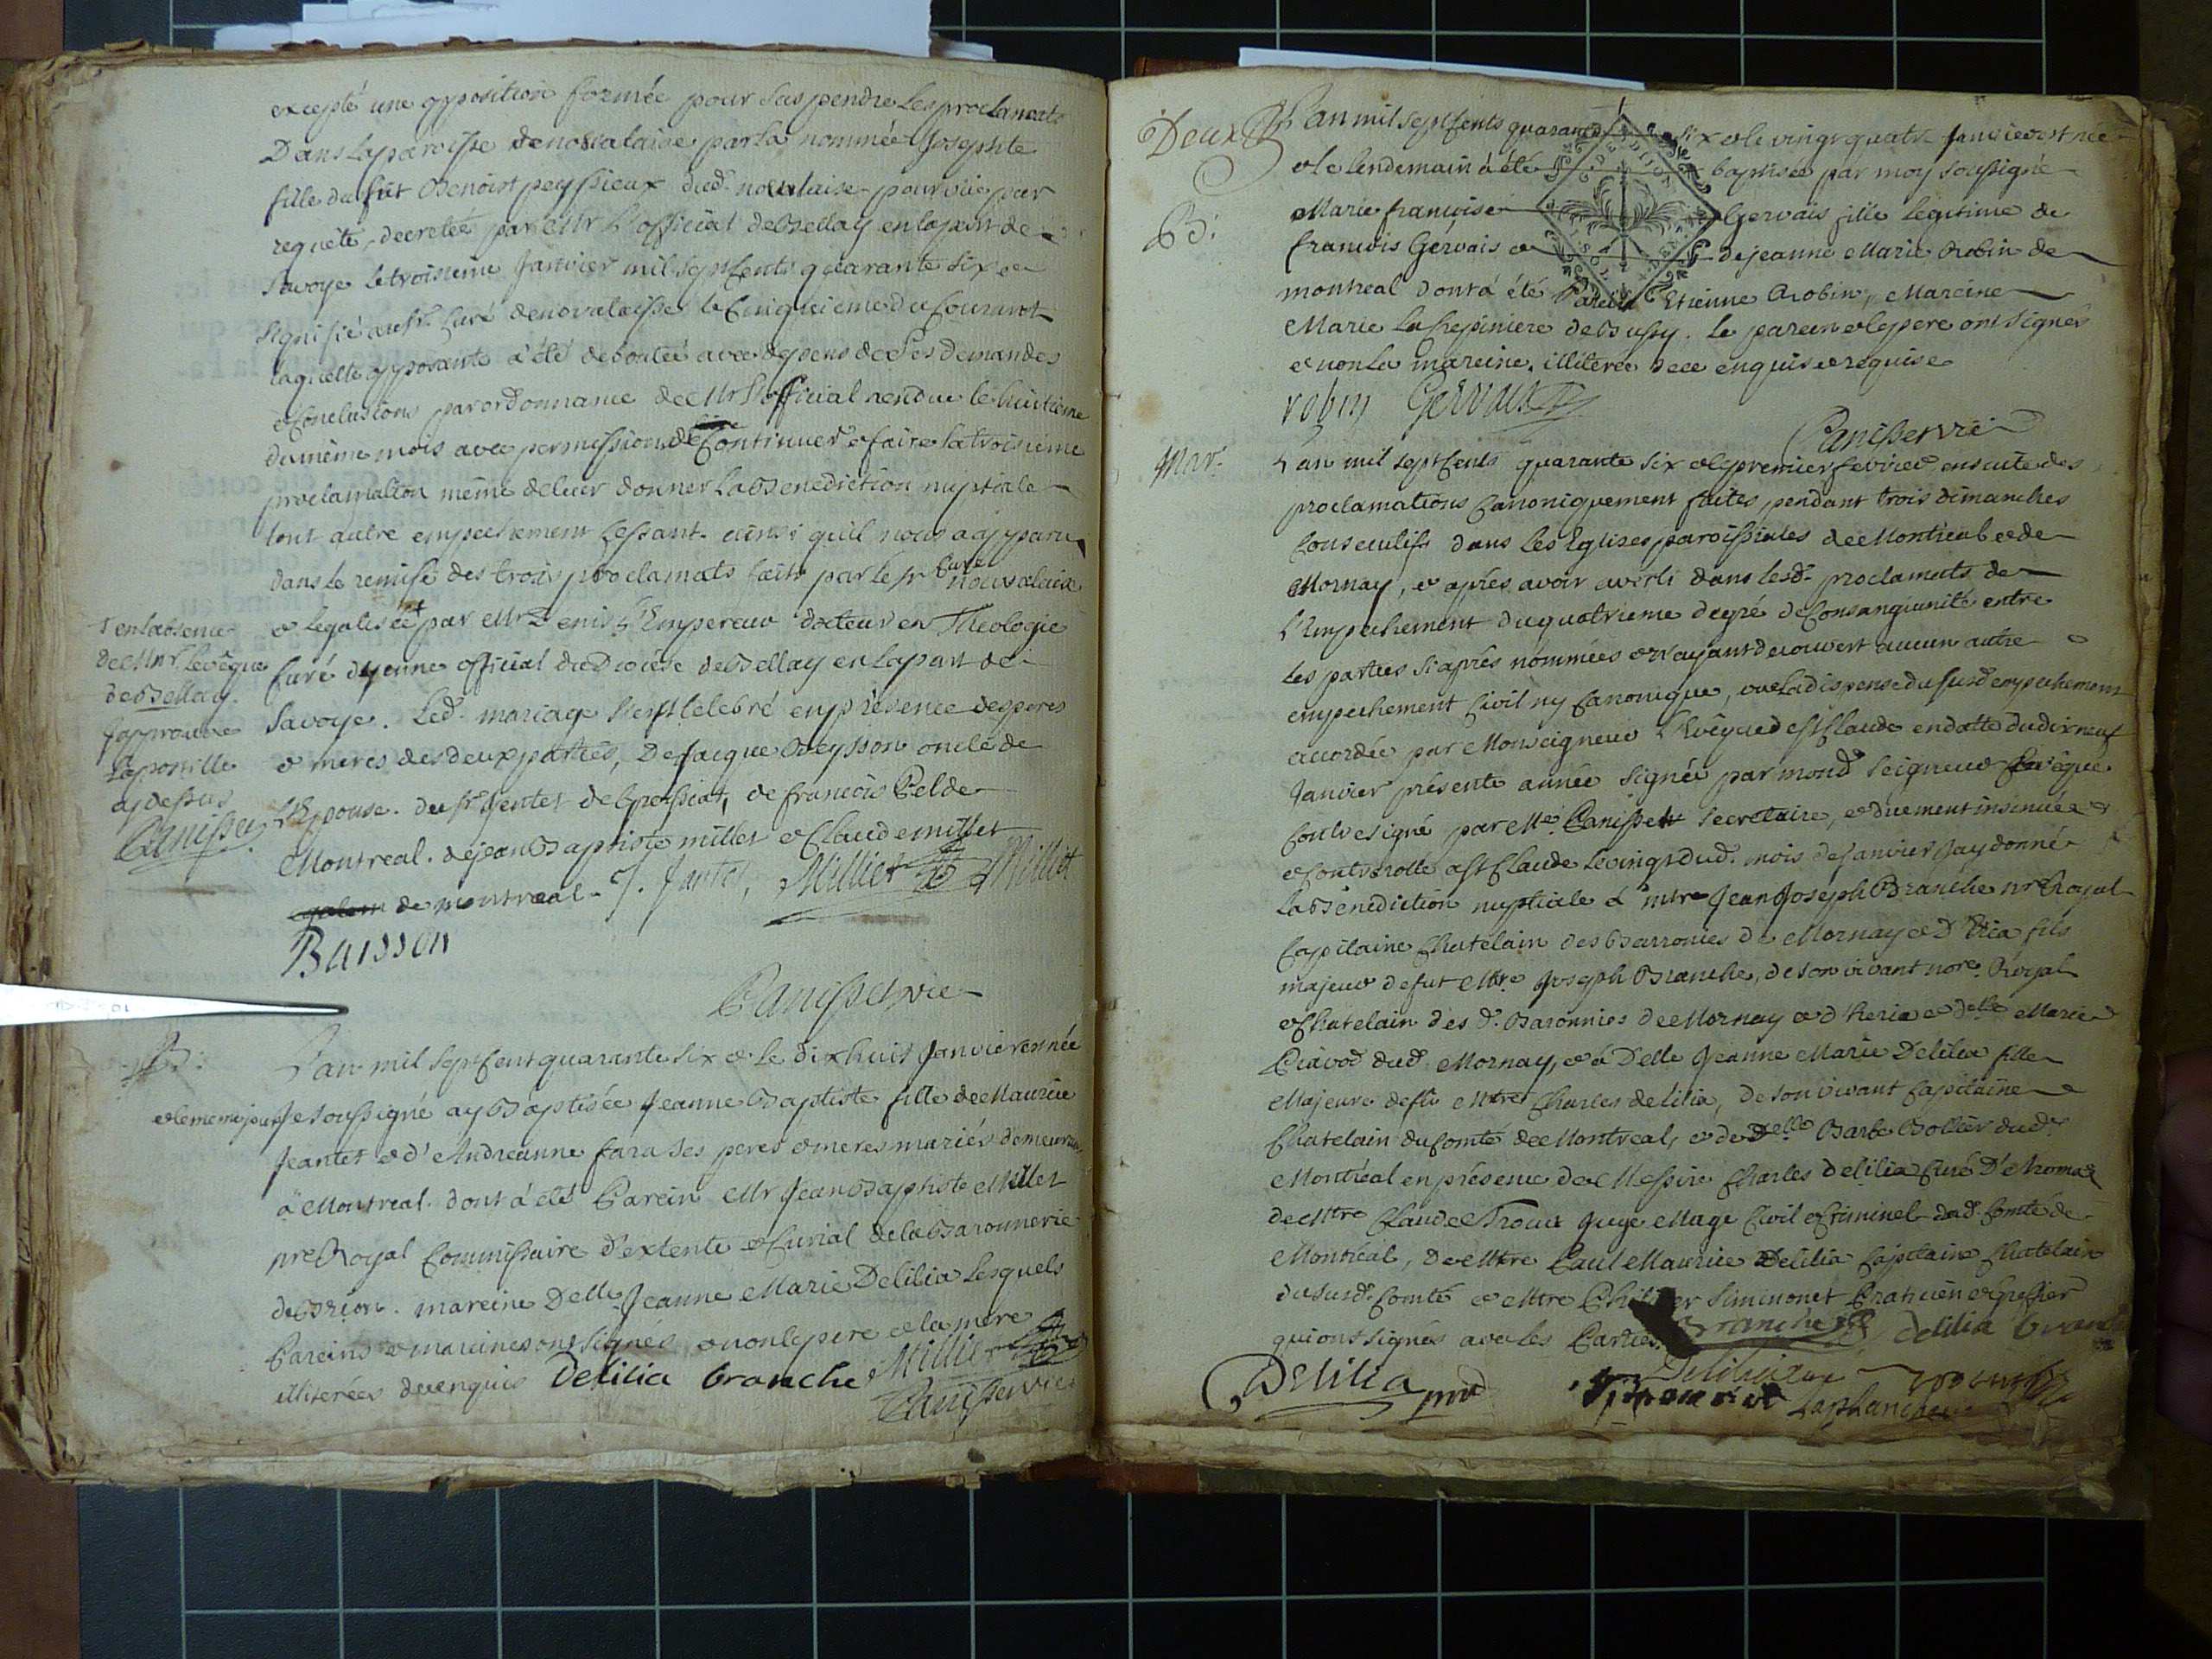 excepté une opposition formée pour suspendre les proclamats
Dans la paroisse de novalaise par la nommée Josephte
fille du fût Benoist peyssieux dud. novalaise pourvüe par
requête, decretée par Mr L'official de Bellay en la part de
Savoye le troisieme Janvier mil sept cents quarante six et
signifié au Sr. Curé de novalaisse le Cinquieme du Courant
laquelle opposante a été deboutée avec depens de ses demandes
et Conclusions par ordonnance de Mr L'official rendue le huitieme
du même mois avec permission de Continuer et faire la troisieme
proclamation même de leur donner La Benediction nuptiale
tout autre empechement cessant. ainsi qu'il nous a apparu
dans le remise des trois proclamats faits par le sr Curé
novalaise
et legalisée + par Mr Denis L'Empereur docteur en Theologie
+ en l'absence
de Mgr. L'evêque
de Bellay.
J'approuve
L'apostille
cy dessus
Canisset
Curé d'yenne official du Diocése de Bellay en la part de
Savoye. Led. mariage s'est Celebré en présence des peres
et meres des deux parties, De Jacque Beysson oncle de
L'Epouse. du sr. Jentet de Greissiat, de francois Pelde
Montreal. de jean Baptiste millet et Claude millet
de montreal. J. Jantet, Milliet Milliet
Baisson
Canisset vic
B:
L'an mil sept Cent quarante six et le dix huit Janvier est née
et le meme jour Je soussigné ay Baptisée Jeanne Baptiste fille de Maurice
Jeantet et d'Andreanne fara ses peres et meres mariés demeurans
à Montreal. dont à été Parein Mr Jean Baptiste Millet
nre Royal Commissaire d'extente et Curial de la Baronnerie
de Brion. mareine Delle Jeanne Marie Delilia Lesquels
Pareins et mareines ont signés et non le pere et la mere
illiterées de ce enquis Delilia branche Milliet
Canisset vic
Deux
L'an mil sept Cents quarante six et le vingt quatre Janvier est née
et le lendemain à été baptisée par moy soussigné
B:
Marie françoise Gervais fille legitime de
francois Gervais et de jeanne Marie Robin de
montreal dont à été Parein Etienne Robin, Mareine
Marie La Crepiniere de Bussy. Le parein et le pere ont signés
et non La mareine. illiterée de ce enquise et requise
robin Gervais
Canisset vic
Mar.
L'an mil sept Cents quarante six et le premier fevrier, ensuite des
proclamations Canoniquement faites, pendant trois dimanches
Consecutifs dans Les Eglises paroissiales de Montreal et de
Mornay, et aprés avoir averti dans lesd. proclamats de
L'Empechement du quatrieme degré de Consanguinité entre
Les parties si aprés nommées et n'ayant decouvert aucun autre
empechement Civil ny Canonique, vu La dispense du susd empechement
accordée par Monseigneur L'Evêque de St Claude en datte du dixneuf
Janvier présente année signée par mond Seigneur Evêque
Contresigné par Me. Canisset secretaire, et duement insinuée et
et Controlle a St Claude Le vingt dud. mois de Janvier J'ay donné
La Bénédiction nuptiale à mtre Jean Joseph Branche nre Royal
Capitaine Chatelain des Barronies de Mornay et D'Eria fils
majeur de fut Mtre Joseph Branche, de son vivant nore Royal
et Chatelain des d. Baronnies de Mornay et d'heria et delle Marie
Cravod dud. Mornay, et à Delle Jeanne Marie Delilia fille
Majeure de fû Mtre Charles delilia, De son vivant Capitaine
Chatelain du Comté de Montreal, et de Delle Barbe Bollier dud
Montréal en présence de Messire Charles delilia Curé D'
de Mtre Claude Trocu Juge Mage Civil et Criminel dud. Comté de
Montréal, de Mtre Paul Maurice Delilia Capitaine Chatelain
du susd. Comté et Mtre Simmonet Praticien et greffier
qui ont signés avec les Parties. Branche delilia branche
Delilia